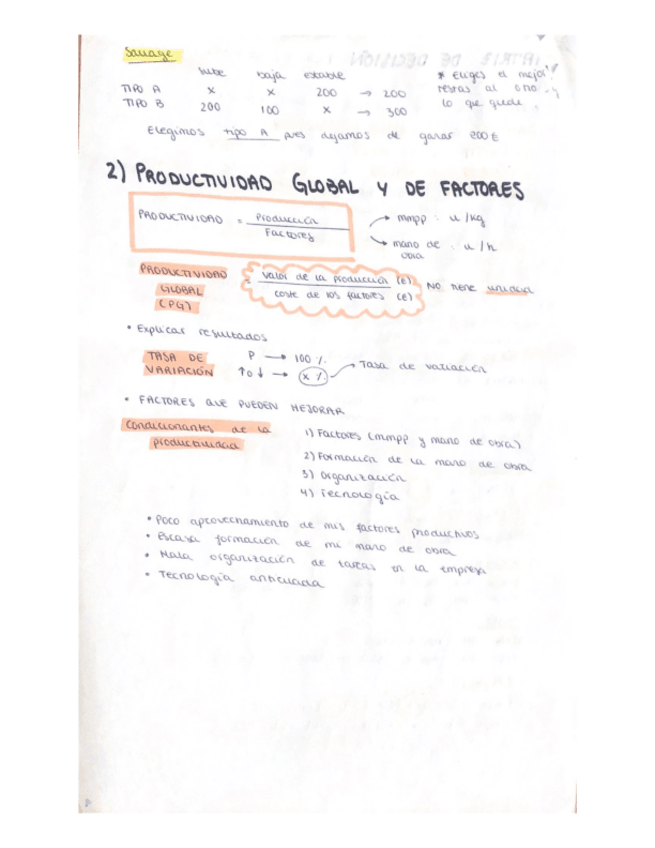 Savage
sube baja estable
TIPO A x x 200 → 200
TIPO B 200 100 x → 300
* Eliges el mejor y
restas al otro →
lo que quede
Elegimos tipo A pues dejamos de ganar 200€
2) PRODUCTIVIDAD GLOBAL Y DE FACTORES
PRODUCTIVIDAD = Producción
Factores
→ mmpp : u/kg
→ mano de : u/h
obra
PRODUCTIVIDAD
GLOBAL
(PG)
= valor de la producción (€)
coste de los factores (€)
NO tiene unidad
• Explicar resultados
TASA DE
VARIACIÓN
P → 100 %
↑o↓ → x % → Tasa de variación
• FACTORES QUE PUEDEN MEJORAR
Condicionantes de la
productividad
1) Factores (mmpp y mano de obra)
2) Formación de la mano de obra
3) Organización
4) Tecnología
• Poco aprovechamiento de mis factores productivos
• Escasa formación de mi mano de obra
• Mala organización de tareas en la empresa
• Tecnología anticuada